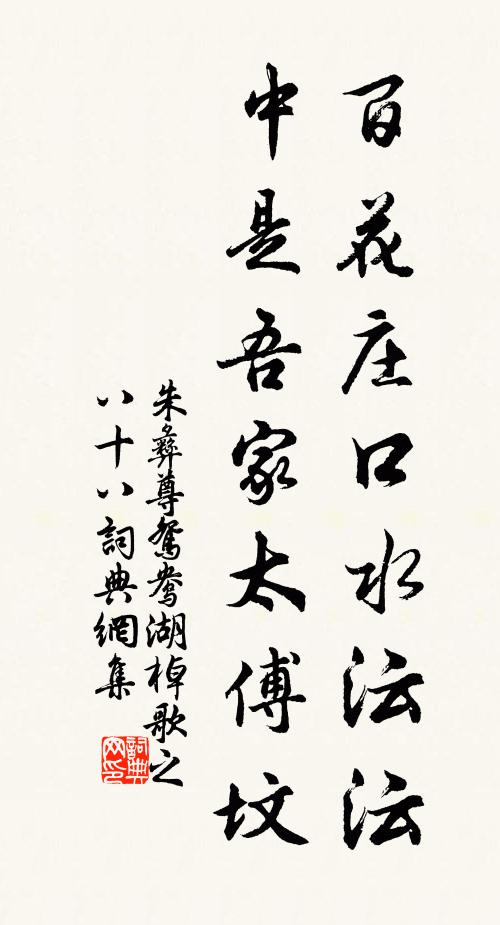 百花庄口水沄沄
中是吾家太傅坟
朱彝尊鴛鴦湖棹歌之
八十八詞典網集
詞典网印